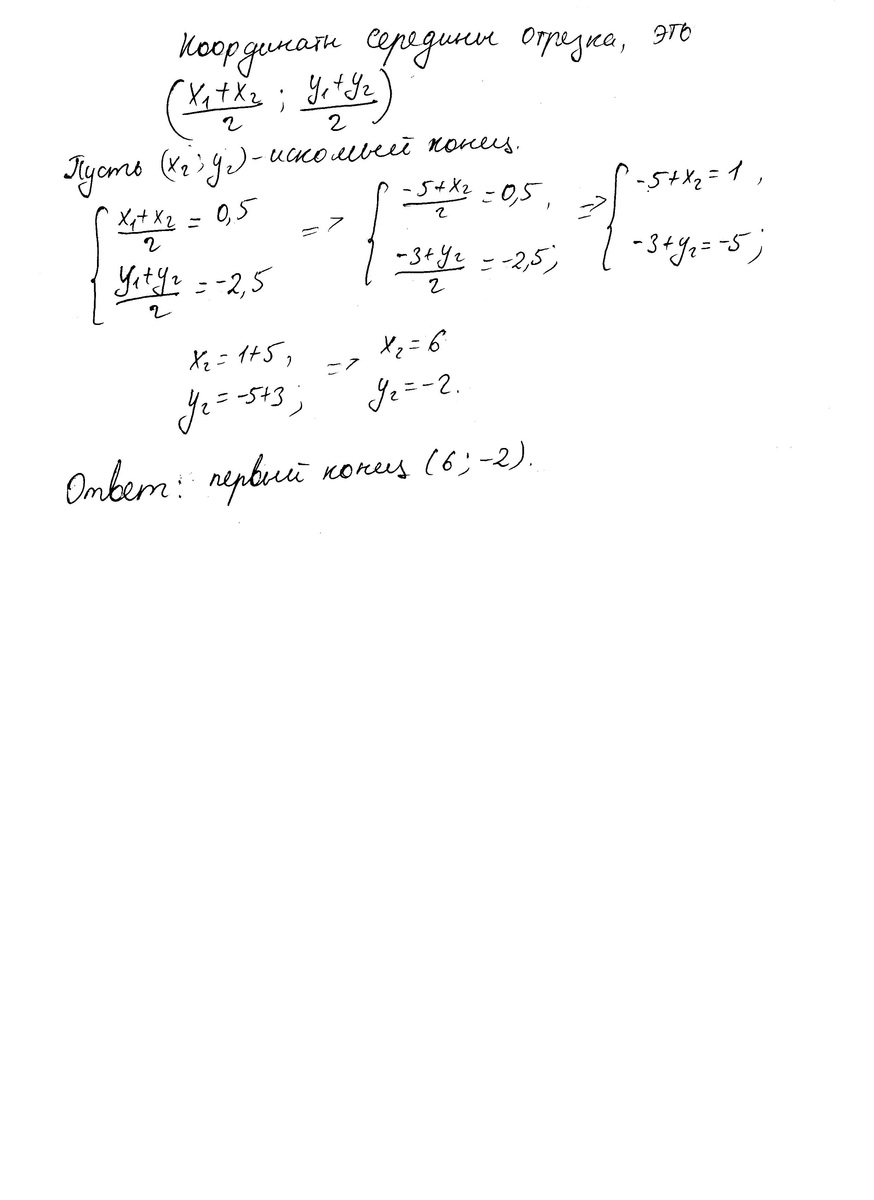 Координаты середины отрезка, это
(x₁+x₂)/2 ; (y₁+y₂)/2
Пусть (x₂; y₂) - искомый конец.
{ (x₁+x₂)/2 = 0,5 => { (-5+x₂)/2 = 0,5, => { -5+x₂ = 1,
(y₁+y₂)/2 = -2,5 (-3+y₂)/2 = -2,5; -3+y₂ = -5;
x₂ = 1+5, => x₂ = 6
y₂ = -5+3; y₂ = -2.
Ответ: первый конец (6; -2).